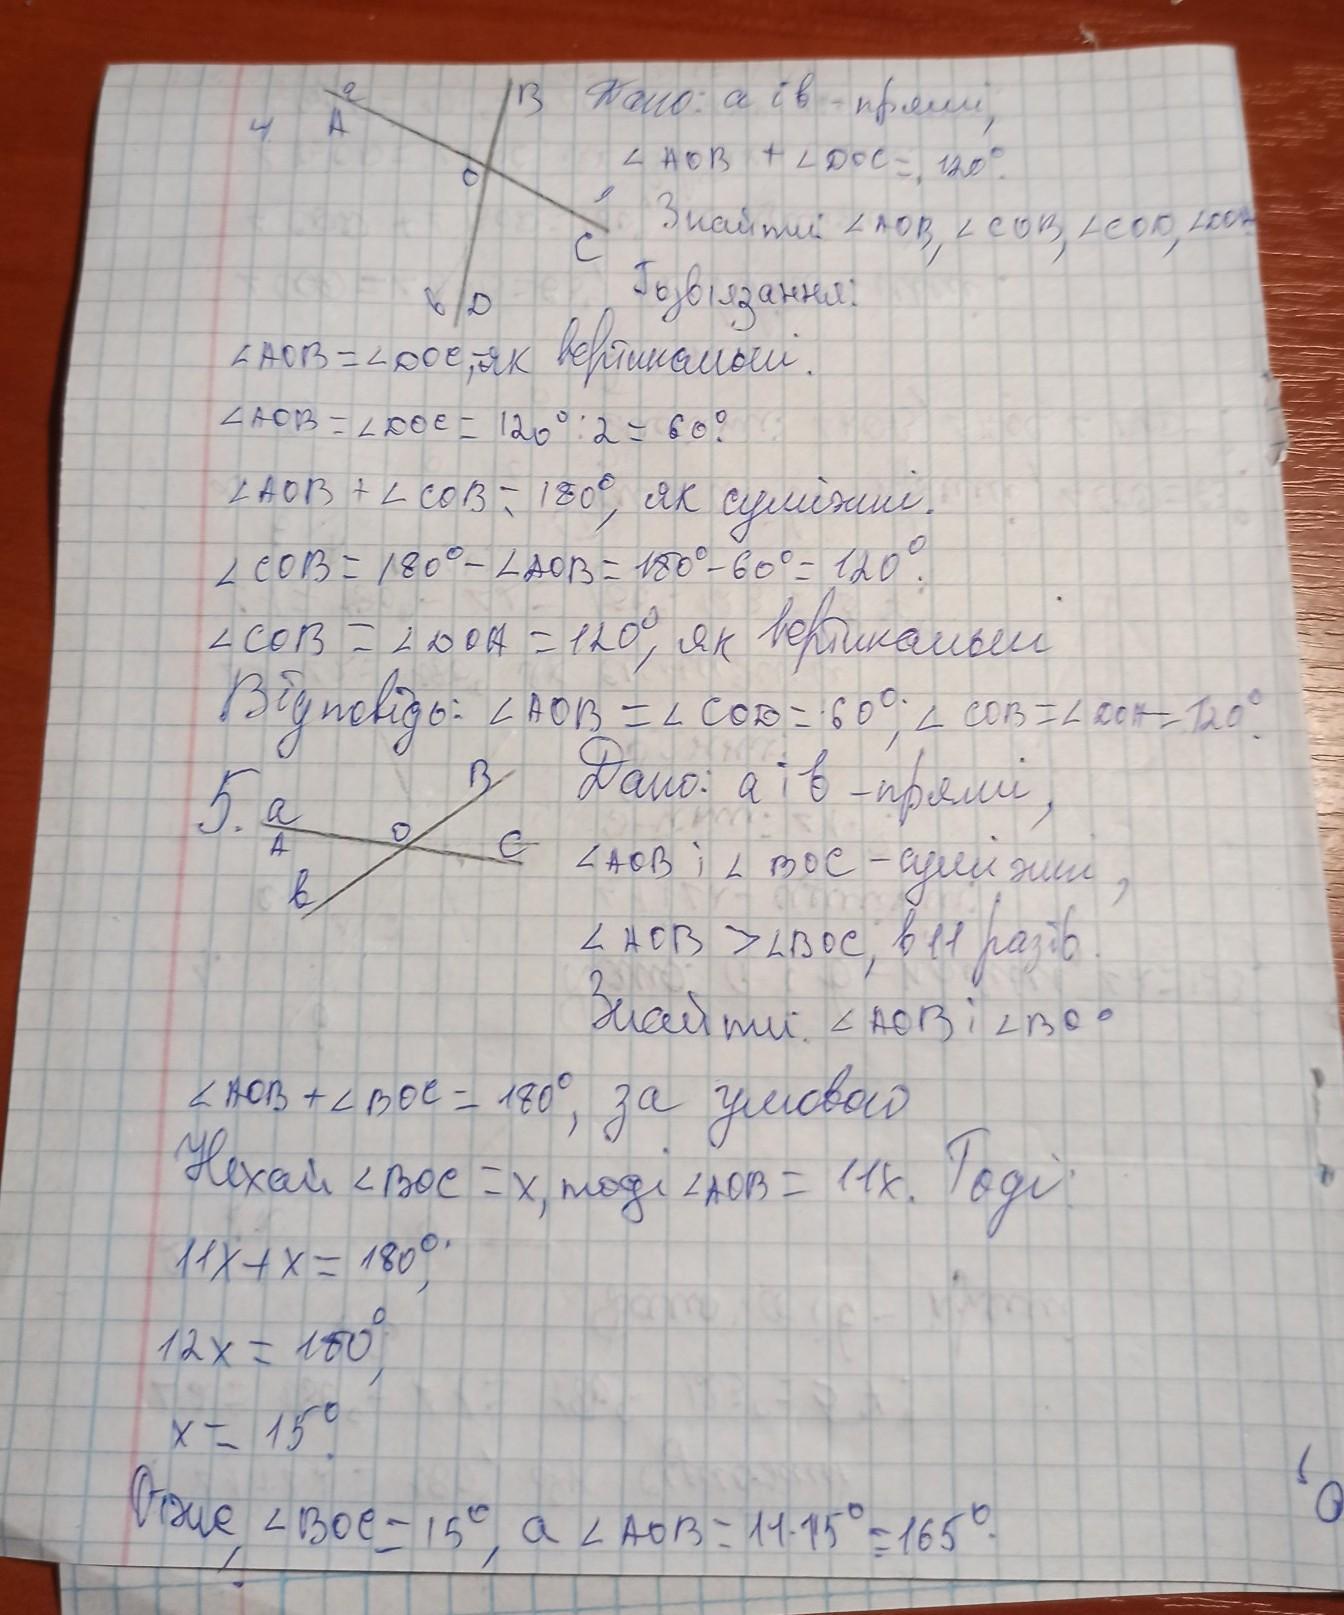 4.
a
A
B
O
C
в D
Дано: а і в - прямі,
∠AOB + ∠DOC = 120°.
Знайти: ∠AOB, ∠COB, ∠COD,
Розв'язання:
∠AOB = ∠DOC, як вертикальні.
∠AOB = ∠DOC = 120° : 2 = 60°.
∠AOB + ∠COB = 180°, як суміжні.
∠COB = 180° - ∠AOB = 180° - 60° = 120°.
∠COB = ∠DOA = 120°, як вертикальні
Відповідь: ∠AOB = ∠COD = 60°; ∠COB = ∠DOA = 120°.
5.
a
A
B
O
C
в
Дано: а і в - прямі,
∠AOB і ∠BOC - суміжні,
∠AOB > ∠BOC, в 11 разів.
Знайти: ∠AOB і ∠BO
∠AOB + ∠BOC = 180°, за умовою
Нехай ∠BOC = x, тоді ∠AOB = 11x. Тоді:
11x + x = 180°;
12x = 180°;
x = 15°.
Отже, ∠BOC = 15°, а ∠AOB = 11·15° = 165°.